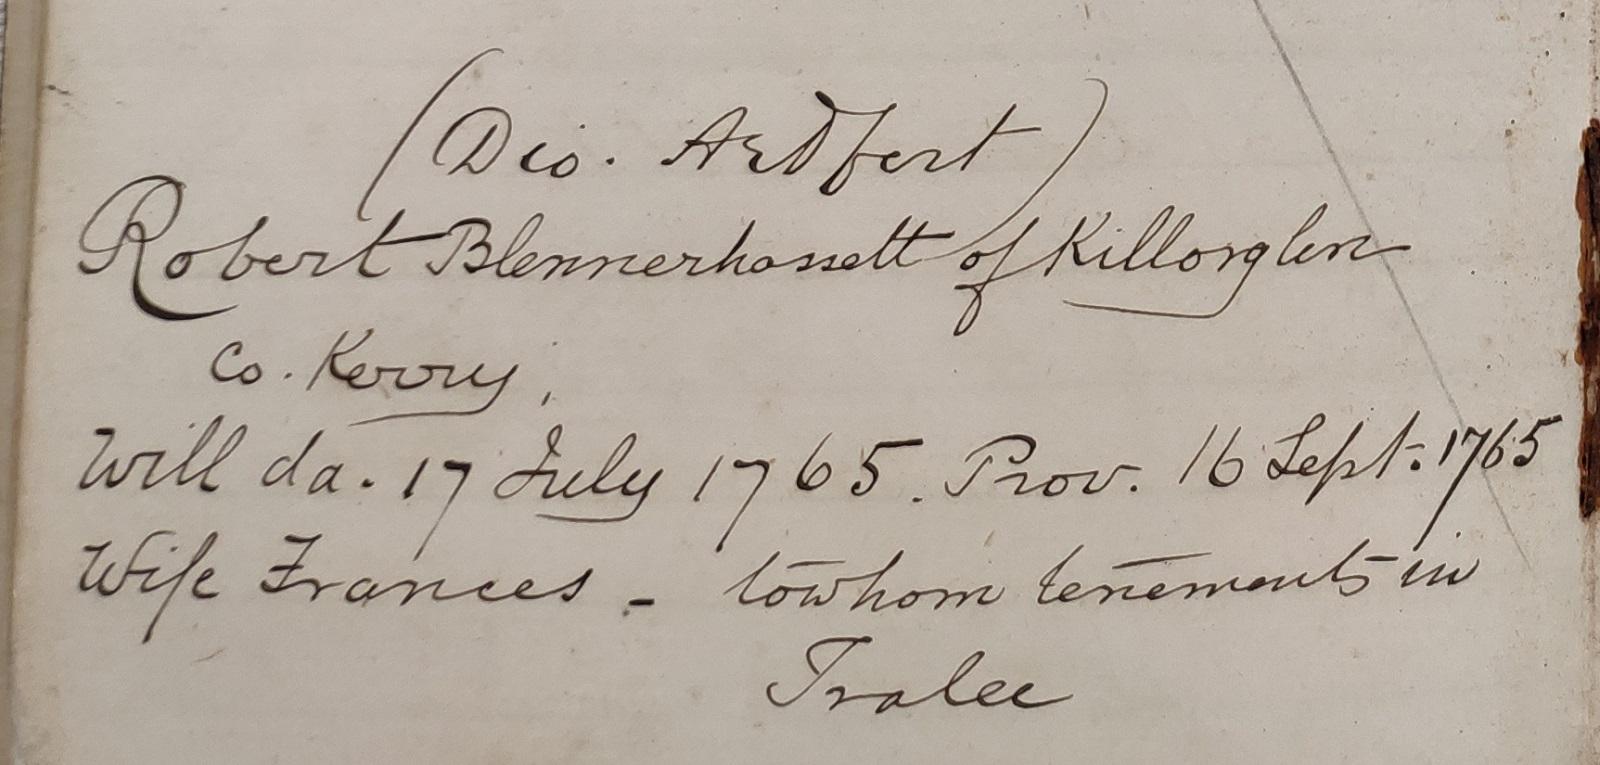 (Dio. Ardfert)
Robert Blennerhassett of Killorglin
Co. Kerry,
Will da. 17 July 1765. Prov. 16 Sept. 1765
Wife Frances - to whom tenements in
Tralee